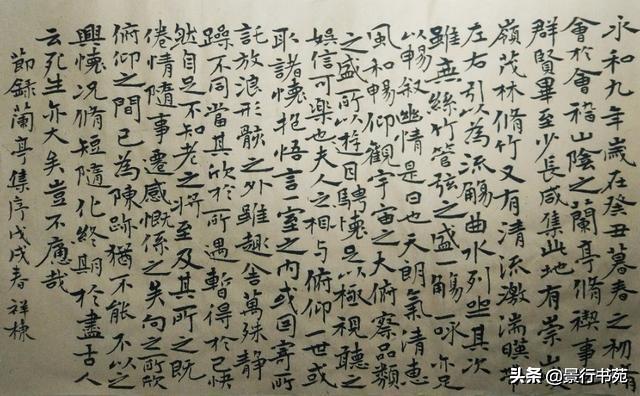 永和九年歲在癸丑暮春之初
會於會稽山陰之蘭亭脩禊事
群賢畢至少長咸集此地有崇山
嶺茂林脩竹又有清流激湍暎帶
左右引以為流觴曲水列坐其次
雖無絲竹管弦之盛一觴一詠亦足
以暢叙幽情是日也天朗氣清惠
風和暢仰觀宇宙之大俯察品類
之盛所以遊目騁懷足以極視聽之
娛信可樂也夫人之相与俯仰一世或
取諸懷抱悟言一室之內或因寄所
託放浪形骸之外雖趣舍萬殊靜
躁不同當其欣於所遇暫得於己快
然自足不知老之將至及其所之既
倦情隨事遷感慨係之矣向之所欣
俯仰之間已為陳跡猶不能不以之
興懷況脩短隨化終期於盡古人
云死生亦大矣豈不痛哉
節錄蘭亭集序戊戌春 祥棟
头条 @景行书苑